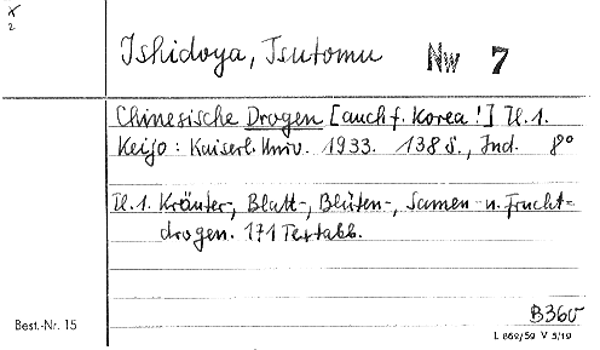 X
2
Ishidoya, Tsutomu Nw 7
Chinesische Drogen [auch f. Korea!] Tl. 1.
Keijo: Kaiserl. Univ. 1933. 138 S., Ind. 8°
Tl. 1. Kräuter-, Blatt-, Blüten-, Samen- u. Frucht-
drogen. 171 Textabb.
B360
Best.-Nr. 15
L 869/59 V 5/19